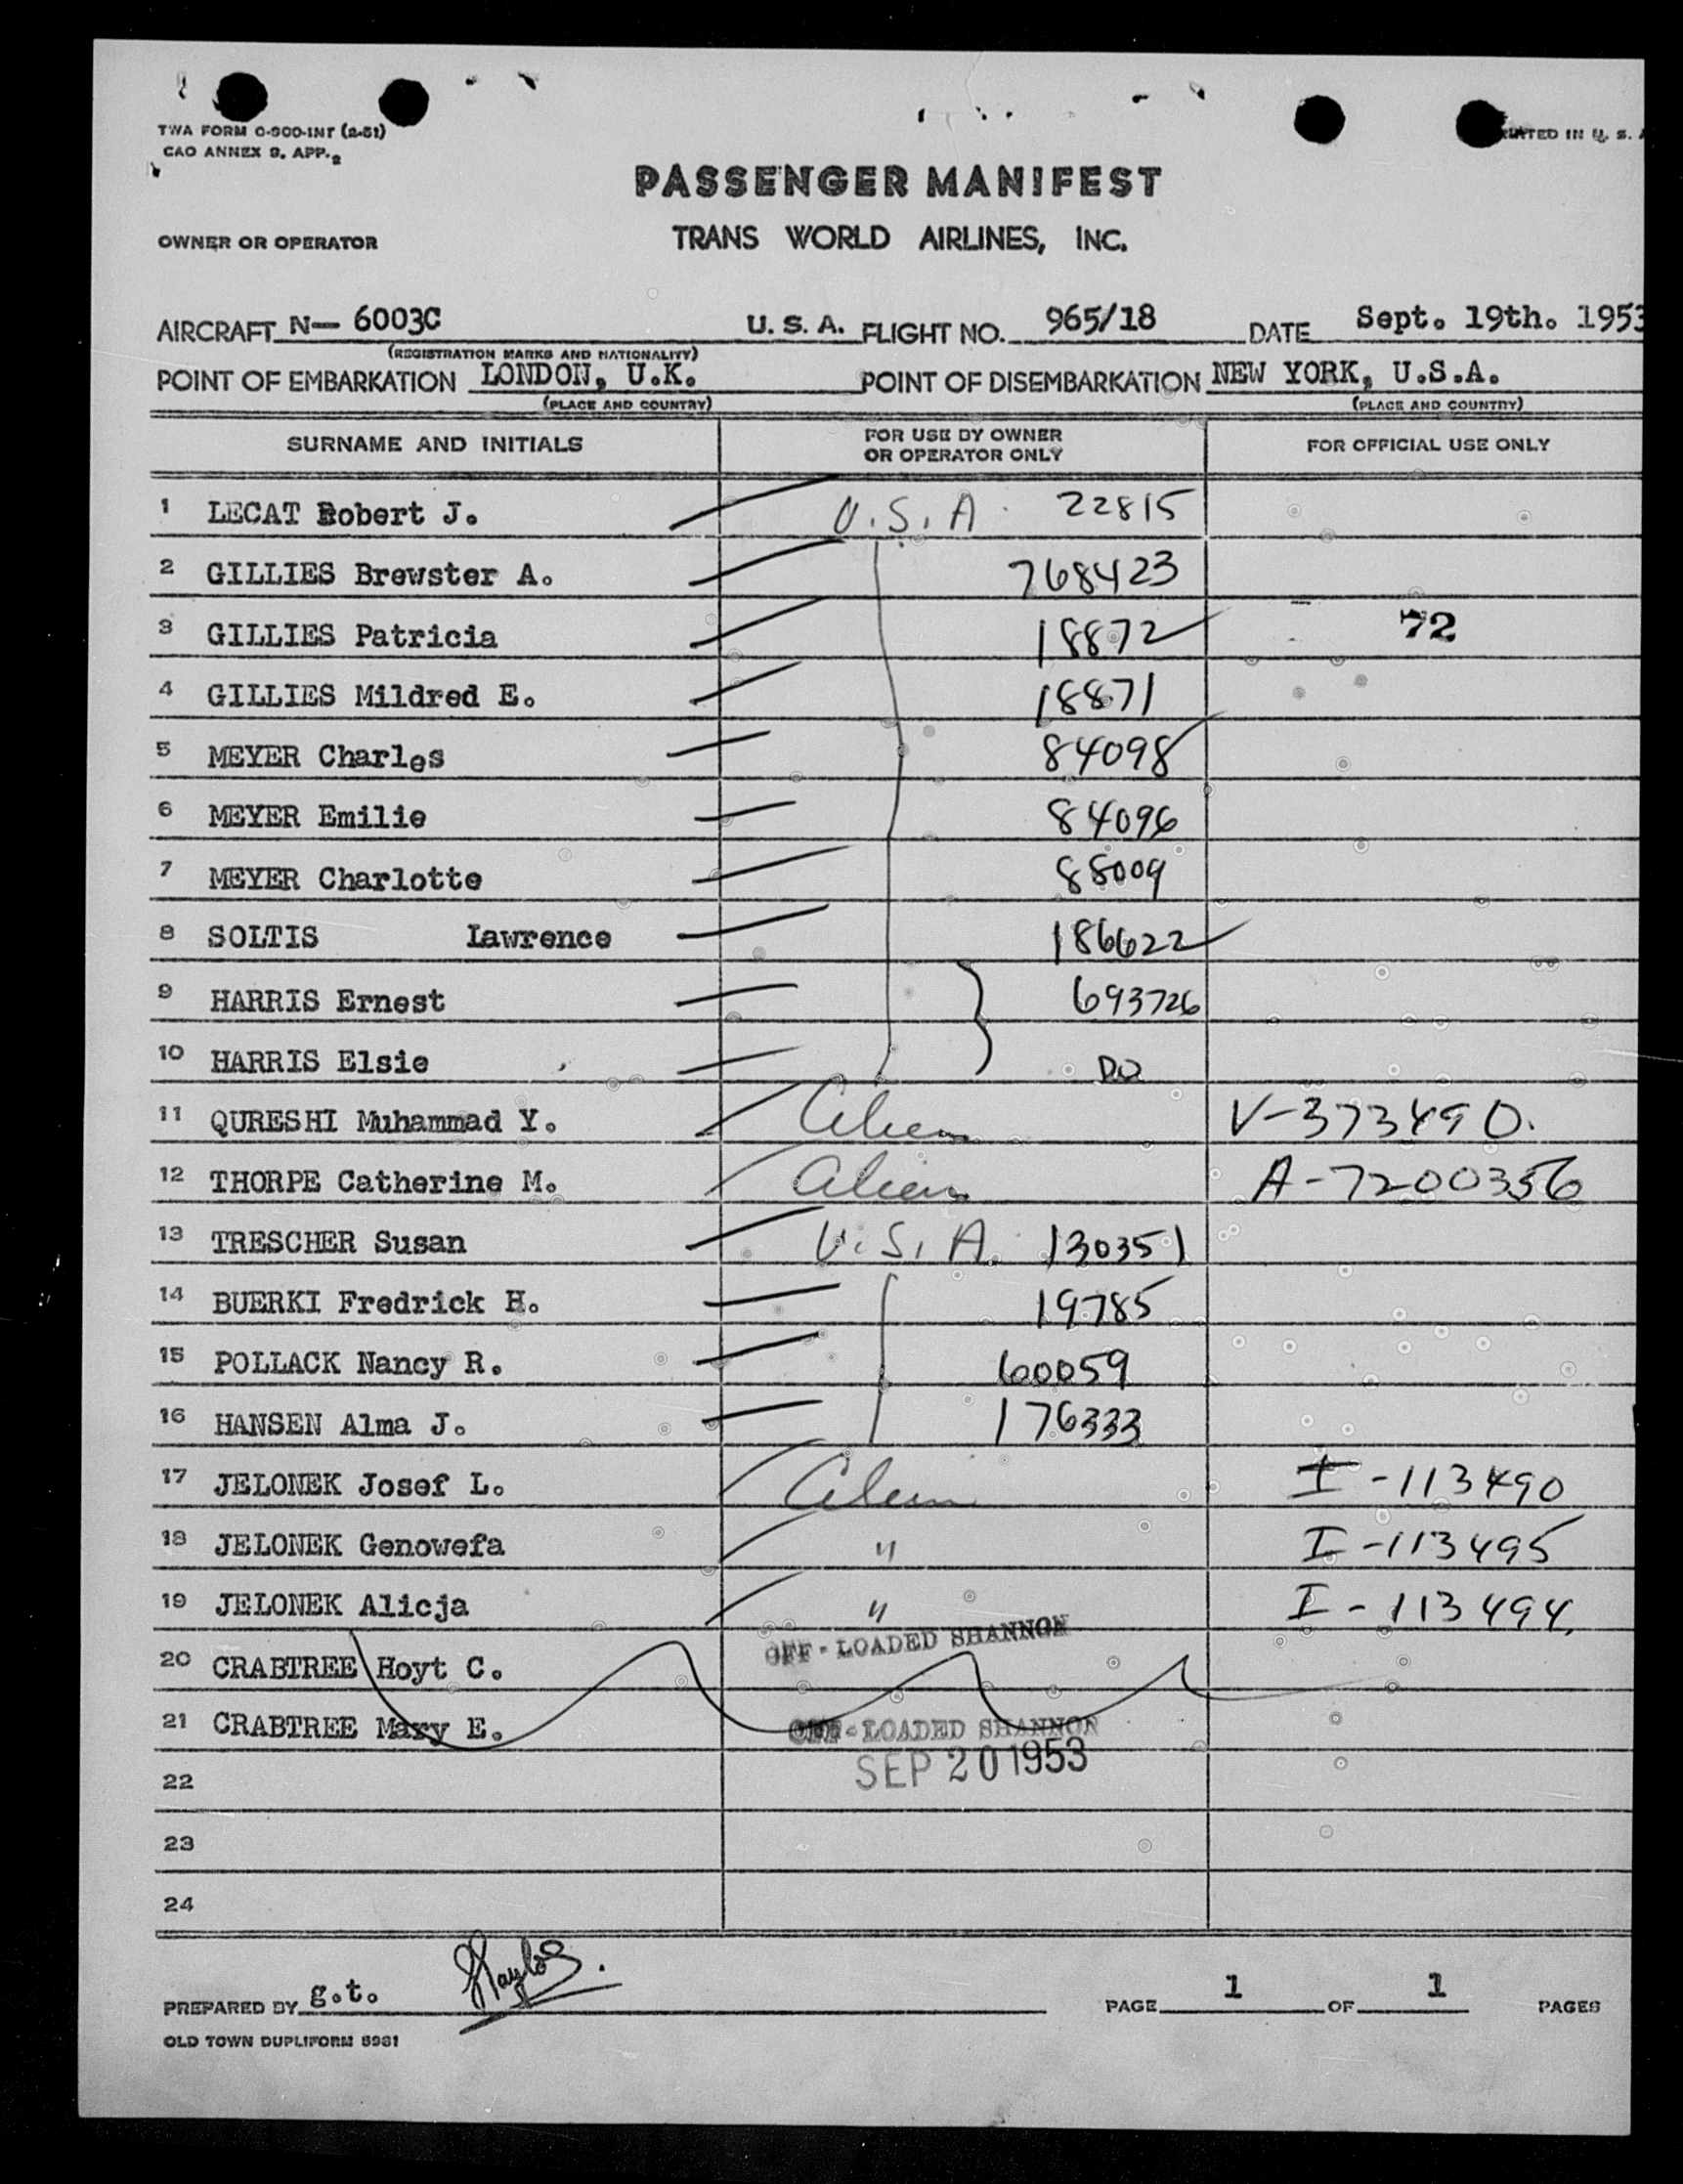 TWA FORM O-900-INT (2-51)
CAO ANNEX 9, APP. 2
PRINTED IN U. S. A
PASSENGER MANIFEST
OWNER OR OPERATOR
TRANS WORLD AIRLINES, INC.
AIRCRAFT N— 6003C U. S. A. FLIGHT NO. 965/18 DATE Sept. 19th. 1953
(REGISTRATION MARKS AND NATIONALITY)
POINT OF EMBARKATION LONDON, U.K. POINT OF DISEMBARKATION NEW YORK, U.S.A.
(PLACE AND COUNTRY) (PLACE AND COUNTRY)
SURNAME AND INITIALS FOR USE BY OWNER OR OPERATOR ONLY FOR OFFICIAL USE ONLY
1 LECAT Robert J. U.S.A. 22815
2 GILLIES Brewster A. 768423
3 GILLIES Patricia 18872 72
4 GILLIES Mildred E. 18871
5 MEYER Charles 84098
6 MEYER Emilie 84096
7 MEYER Charlotte 88009
8 SOLTIS Lawrence 186622
9 HARRIS Ernest 693726
10 HARRIS Elsie DO
11 QURESHI Muhammad Y. Alien V-373490.
12 THORPE Catherine M. Alien A-7200356
13 TRESCHER Susan U.S.A. 130351
14 BUERKI Fredrick H. 19785
15 POLLACK Nancy R. 60059
16 HANSEN Alma J. 176333
17 JELONEK Josef L. Alien I-113490
18 JELONEK Genowefa " I-113495
19 JELONEK Alicja " I-113494.
20 CRABTREE Hoyt C. OFF-LOADED SHANNON
21 CRABTREE Mary E. OFF-LOADED SHANNON
22 SEP 20 1953
23
24
PREPARED BY g.t. PAGE 1 OF 1 PAGES
OLD TOWN DUPLIFORM 5981